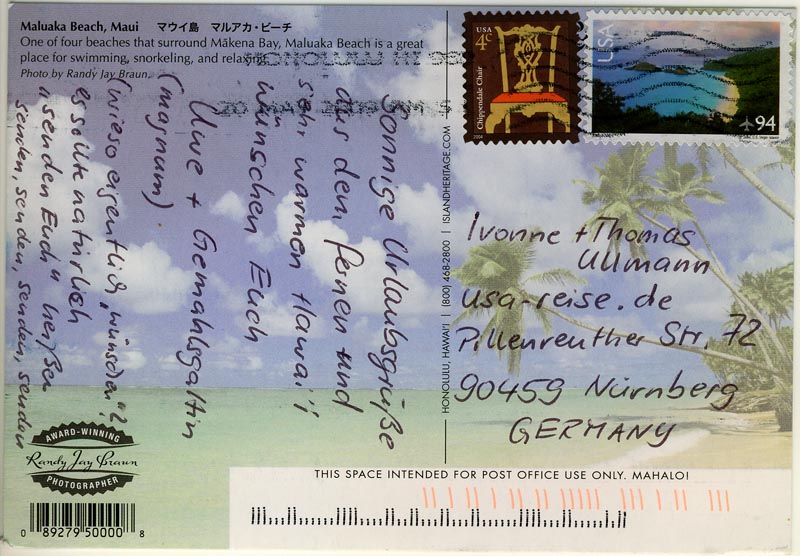 Maluaka Beach, Maui マウイ島 マルアカ・ビーチ
One of four beaches that surround Mākena Bay, Maluaka Beach is a great
place for swimming, snorkeling, and relaxing.
Photo by Randy Jay Braun.
Sonnige Urlaubsgrüße
aus dem fernen und
sehr warmen Hawai'i
wünschen Euch
Uwe + Gemahlsgattin
(magnum)
(wieso eigentlich „wünschen"?
es sollte natürlich
„senden Euch" heißen
senden, senden, senden, senden
HONOLULU, HAWAI'I | (800) 468-2800 | ISLANDHERITAGE.COM
USA
4¢
Chippendale Chair
2004
USA
94
Ivonne + Thomas
Ullmann
usa-reise.de
Pillenreuther Str. 72
90459 Nürnberg
GERMANY
AWARD-WINNING
Randy Jay Braun
PHOTOGRAPHER
0 89279 50000 8
THIS SPACE INTENDED FOR POST OFFICE USE ONLY. MAHALO!